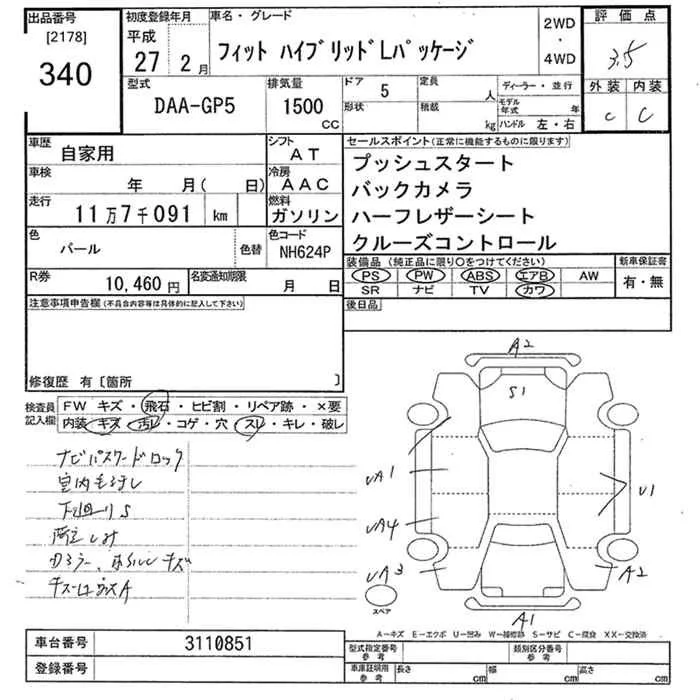 出品番号 [2178] 340
初度登録年月 平成 27 2月
車名・グレード フィット ハイブリッドLパッケージ
2WD・4WD
評価点 3.5
型式 DAA-GP5
排気量 1500 CC
ドア 5
形状
定員 人
積載 kg
ディーラー・並行
モデル年式 年
ハンドル 左・右
外装 C
内装 C
車歴 自家用
シフト AT
車検 年 月( 日)
冷房 AAC
走行 11万7千091 km
燃料 ガソリン
色 パール
色替
色コード NH624P
R券 10,460円
名変通知期限 月 日
セールスポイント(正常に機能するものに限ります)
プッシュスタート
バックカメラ
ハーフレザーシート
クルーズコントロール
装備品(純正品に限り○をつけてください)
PS PW ABS エアB AW
SR ナビ TV カワ
新車保証書 有・無
後日品
注意事項申告欄(不具合内容等は具体的に記入して下さい)
修復歴 有〔箇所 〕
検査員記入欄
FW キズ・飛石・ヒビ割・リペア跡・×要
内装・キズ・汚レ・コゲ・穴・スレ・キレ・破レ
ナビパスワードロック
室内毛汚レ
下回りS
A2
S1
UA1
UA4
UA3
U1
A2
A1
スペア
A-キズ E-エクボ U-凹み W-補修跡 S-サビ C-腐食 XX-交換済
車台番号 3110851
登録番号
型式指定番号 参考
類別区分番号 参考
車庫証明用 参考
長さ cm
幅 cm
高さ cm